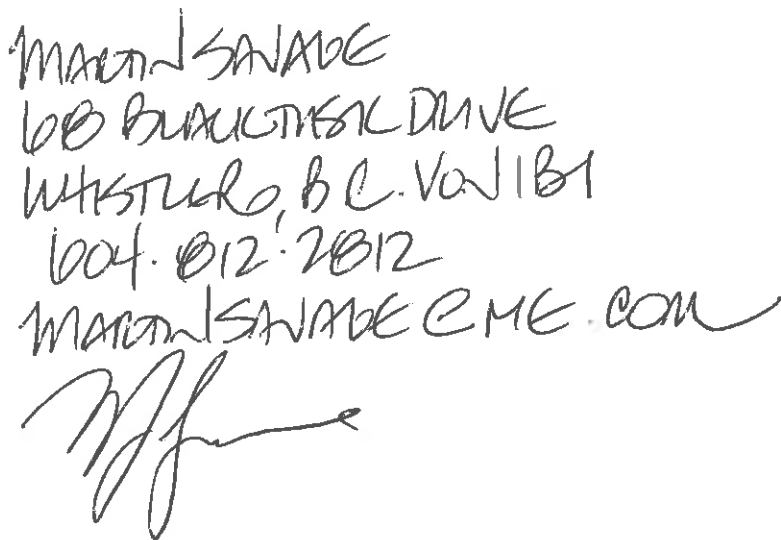 MARTIN SAVAGE
DRIVE
WHISTLER, BC. V0N 1B1
604.812.2812
MARTINSAVAGE@ME.COM